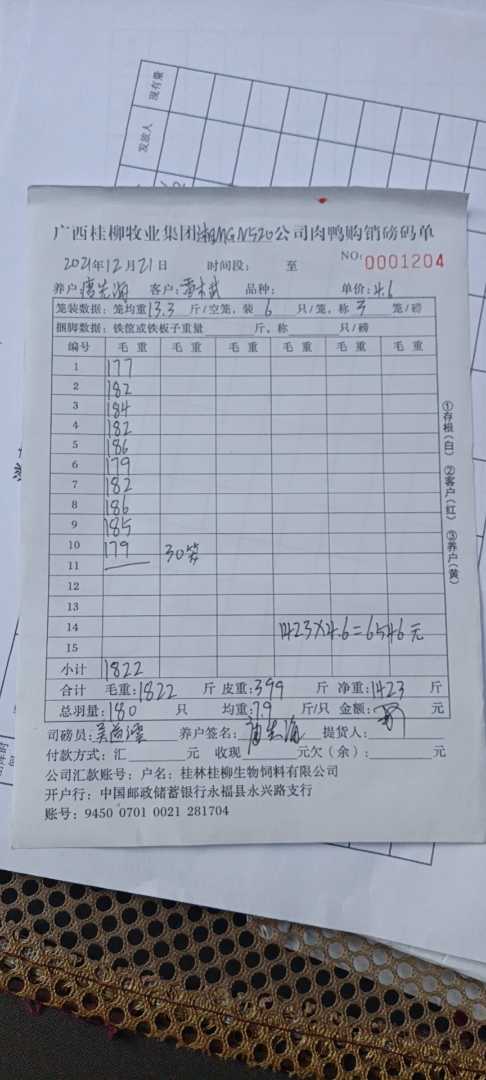 现有量
发放人
广西桂柳牧业集团湘HNGN520公司肉鸭购销磅码单
2021年12月21日 时间段: 至 NO: 0001204
养户: 客户: 品种: 单价: 4.6
笼装数据: 笼均重13.3斤/空笼, 装6只/笼, 称3笼/磅
捆脚数据: 铁筐或铁板子重量 斤, 称 只/磅
编号 毛重 毛重 毛重 毛重 毛重 毛重
1 177
2 182
3 184
4 182
5 186
6 179
7 182
8 186
9 185
10 179 30笼
11
12
13
14 1423×4.6=6546元
15
小计 1822
合计 毛重: 1822 斤 皮重: 399 斤 净重: 1423 斤
总羽量: 180 只 均重: 7.9 斤/只 金额: 元
司磅员: 养户签名: 提货人:
付款方式: 汇 元 收现 元欠(余): 元
公司汇款账号: 户名: 桂林桂柳生物饲料有限公司
开户行: 中国邮政储蓄银行永福县永兴路支行
账号: 9450 0701 0021 281704
①存根(白) ②客户(红) ③养户(黄)